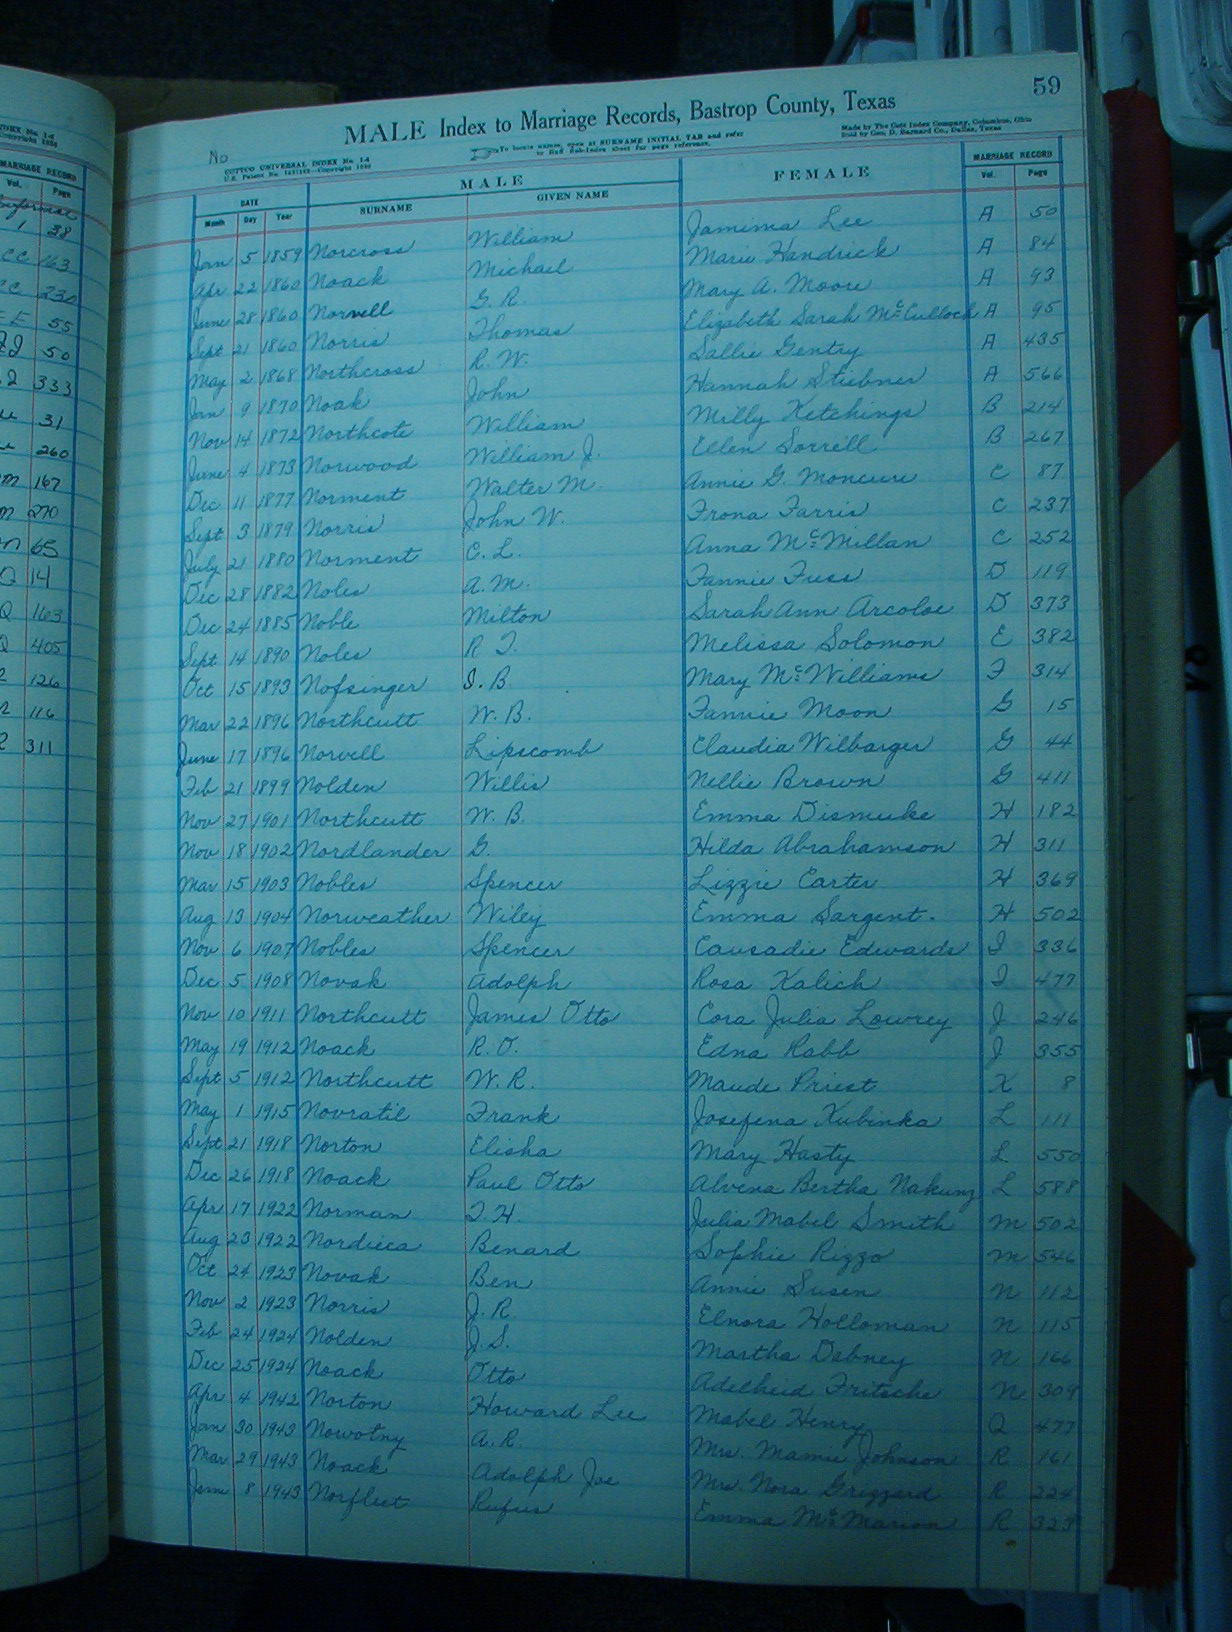 59
MALE Index to Marriage Records, Bastrop County, Texas
No
COTTCO UNIVERSAL INDEX No. 1-4
To locate names, open at SURNAME INITIAL TAB and refer
Made by The Cott Index Company, Columbus, Ohio
Sold by Geo. D. Barnard Co., Dallas, Texas
DATE MALE FEMALE MARRIAGE RECORD
Month Day Year SURNAME GIVEN NAME Vol. Page
Jan 5 1859 Norcross William Jamima Lee A 50
Apr 22 1860 Noack Michael Marie Handrick A 84
June 28 1860 Norvell G. R. Mary A. Moore A 93
Sept 21 1860 Norris Thomas Elizabeth Sarah McCulloch A 95
May 2 1868 Northcross R. W. Sallie Gentry A 435
Jan 9 1870 Noak John Hannah Stiebner A 566
Nov 14 1872 Northcote William Milly Ketchings B 214
June 4 1873 Norwood William J. Ellen Sorrell B 267
Dec 11 1877 Norment Walter M. Annie G. Moncure C 87
Sept 3 1879 Norris John W. Frona Farris C 237
July 21 1880 Norment C. L. Anna McMillan C 252
Dec 28 1882 Noles A. M. Fannie Fuss D 119
Dec 24 1885 Noble Milton Sarah Ann Arcoloe D 373
Sept 14 1890 Noles R T. Melissa Solomon E 382
Oct 15 1893 Nofsinger I. B. Mary McWilliams F 314
Mar 22 1896 Northcutt W. B. Fannie Moon G 15
June 17 1896 Norvell Lipscomb Claudia Wilbarger G 44
Feb 21 1899 Nolden Willis Nellie Brown G 411
Nov 27 1901 Northcutt W. B. Emma Dismuke H 182
Nov 18 1902 Nordlander G. Hilda Abrahamson H 311
Mar 15 1903 Nobles Spencer Lizzie Carter H 369
Aug 13 1904 Norweather Wiley Emma Sargent. H 502
Nov 6 1907 Nobles Spencer Causadie Edwards I 336
Dec 5 1908 Novak Adolph Rosa Kalich I 477
Nov 10 1911 Northcutt James Otto Cora Julia Lowrey J 246
May 19 1912 Noack R. O. Edna Rabb J 355
Sept 5 1912 Northcutt W. R. Maude Priest K 8
May 1 1915 Novratil Frank Josefena Kubinka L 111
Sept 21 1918 Norton Elisha Mary Hasty L 550
Dec 26 1918 Noack Paul Otto Alvena Bertha Nakunz L 588
Apr 17 1922 Norman T. H. Julia Mabel Smith M 502
Aug 23 1922 Nordieca Benard Sophie Rizzo M 546
Oct 24 1923 Novak Ben Annie Susen N 112
Nov 2 1923 Norris J. R. Elnora Holloman N 115
Feb 24 1924 Nolden J. S. Martha Dabney N 166
Dec 25 1924 Noack Otto Adelheid Fritsche N 309
Apr 4 1942 Norton Howard Lee Mabel Henry Q 477
Jan 30 1943 Nowotny A. R. Mrs. Mamie Johnson R 161
Mar 29 1943 Noack Adolph Joe Mrs. Nora Grizzard R 224
June 8 1943 Norfleet Rufus Emma McMarion R 323
MARRIAGE RECORD
Vol. Page
1 38
CC 163
CC 230
EE 55
50
333
31
260
M 167
M 270
65
Q 14
Q 163
Q 405
126
116
R 311